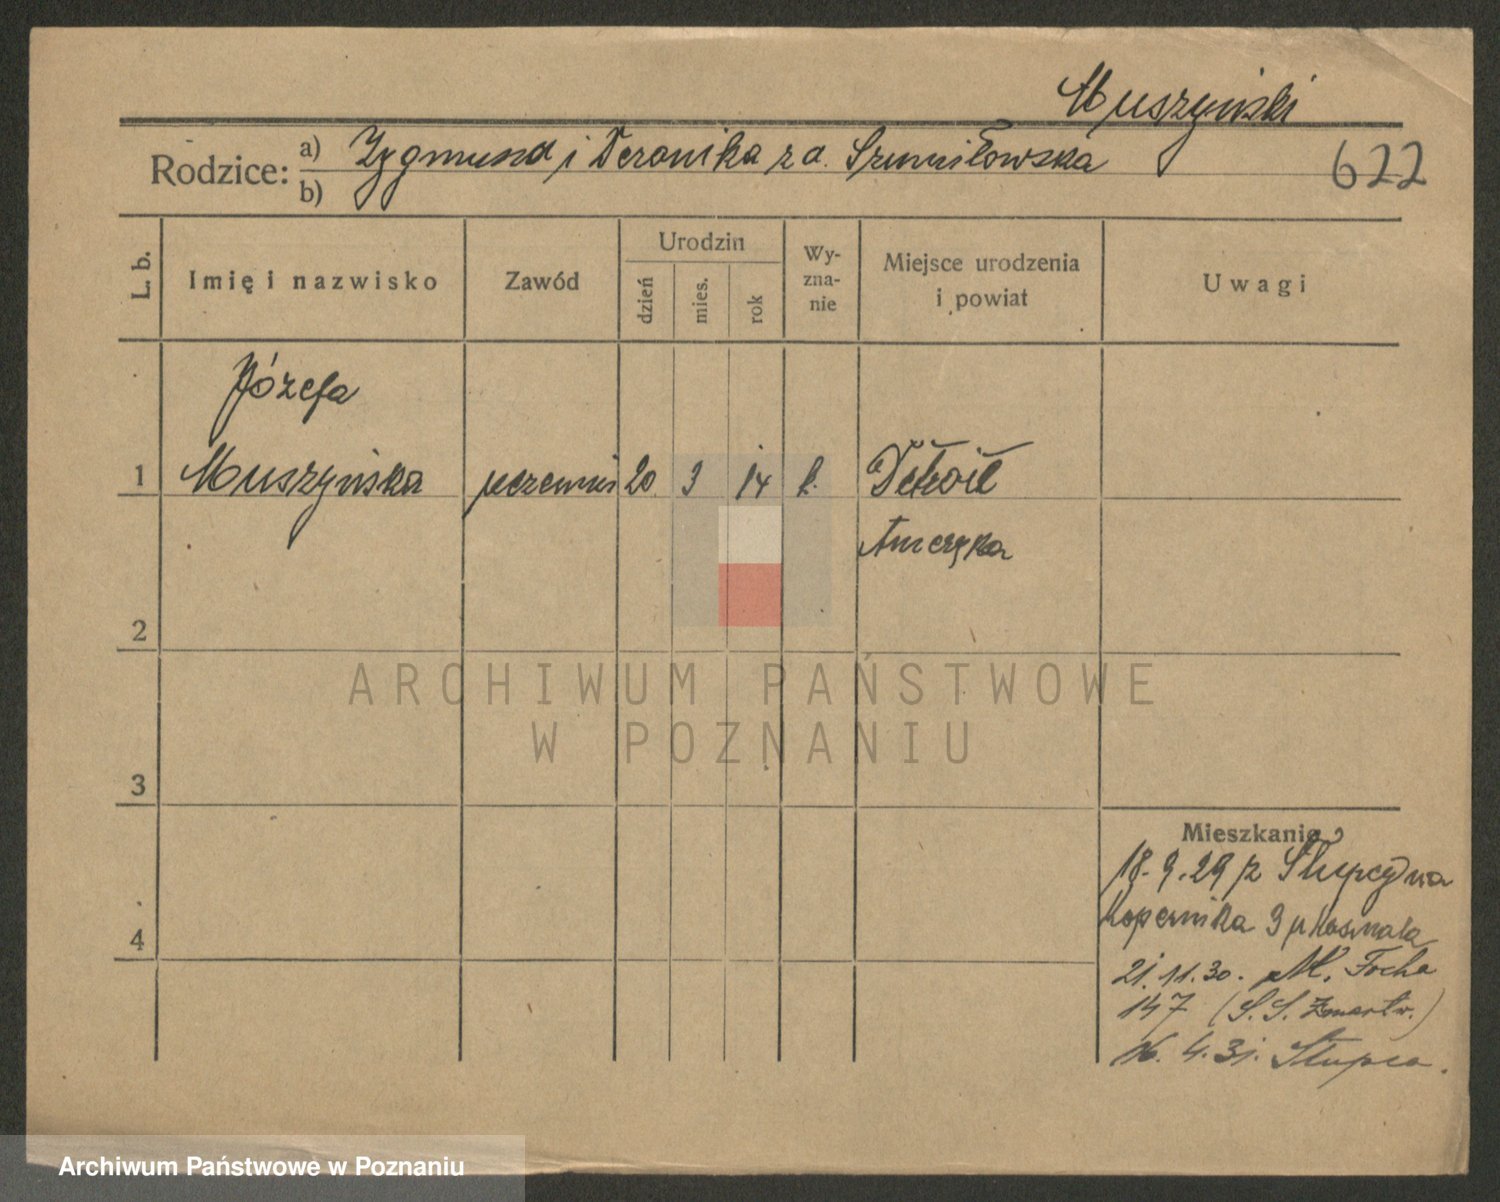 Muszyński
Rodzice: a) Zygmund i Weronika z d. Szumiłowska
b)
622
L. b.
Imię i nazwisko
Zawód
Urodzin
dzień
mies.
rok
Wy-
zna-
nie
Miejsce urodzenia
i powiat
Uwagi
Józefa
1 Muszyńska 20 3 14 k. Detroit
Ameryka
2
3
4
Mieszkanie
18.9.29 z Słupcy na
Kopernika 3 p Kosmala
21.11.30. M. Focha
147 (S.S. Zmartw.)
16.4.31. Słupca.
ARCHIWUM PAŃSTWOWE
W POZNANIU
Archiwum Państwowe w Poznaniu